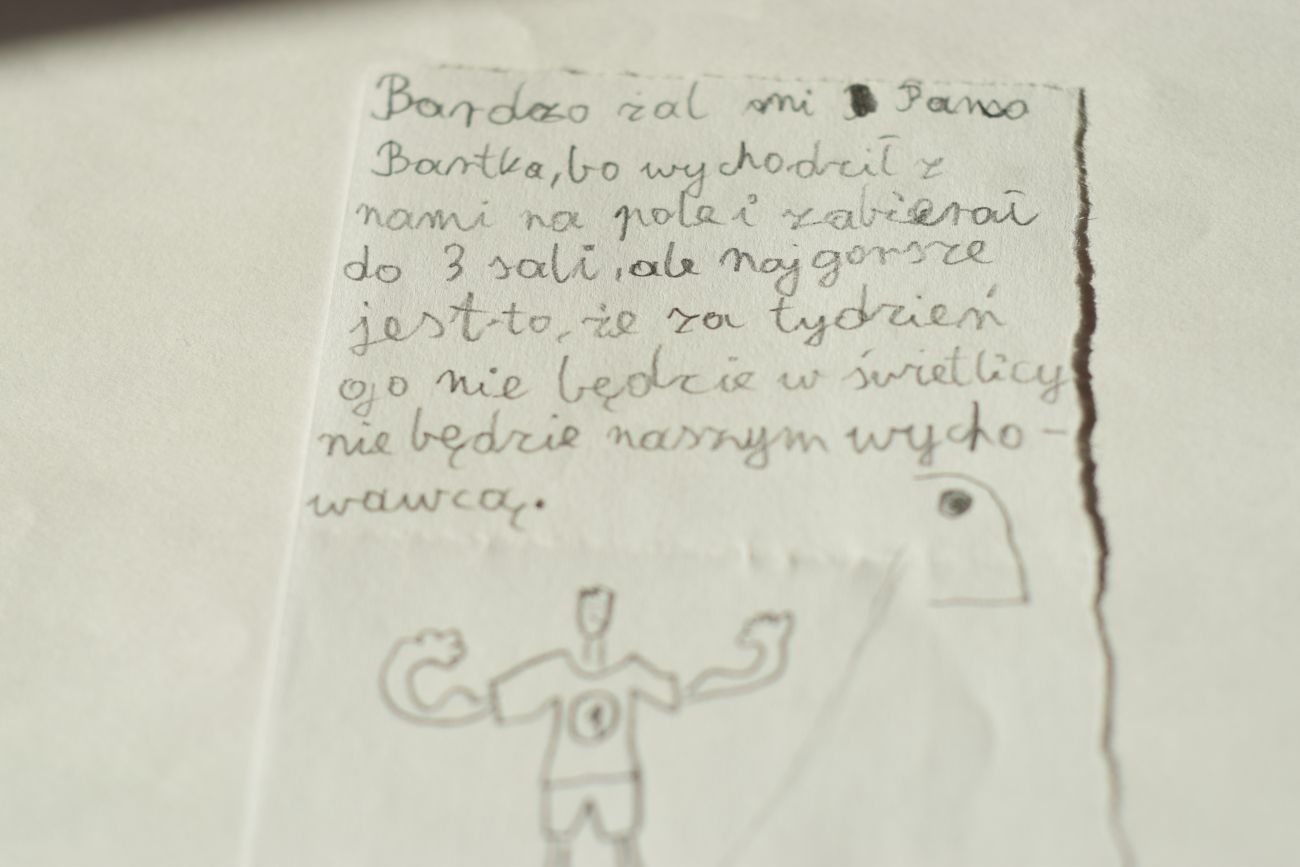 Bardzo żal mi Pana
Bartka, bo wychodził z
nami na pole i zabierał
do 3 sali, ale najgorsze
jest to, że za tydzień
ojo nie będzie w świetlicy
nie będzie naszym wycho-
wawcą.
1